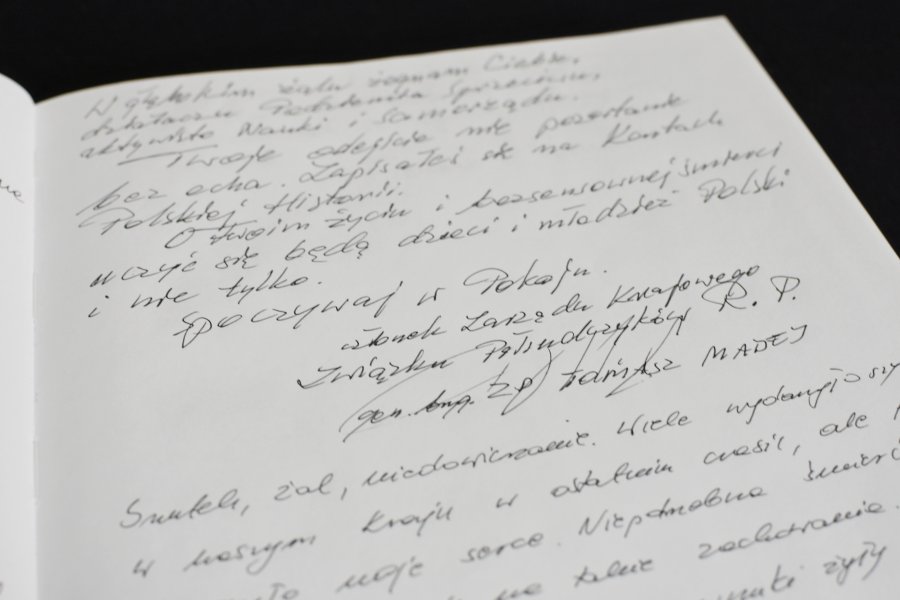 W głębokim żalu żegnam Ciebie,
działaczu Podziemia
aktywisto Nauki i Samorządu.
Twoje odejście nie pozostanie
bez echa. Zapisałeś się na Kartach
Polskiej Historii.
O Twoim życiu i bezsensownej śmierci
uczyć się będą dzieci i młodzież Polski
i nie tylko.
Spoczywaj w Pokoju.
członek Zarządu Krajowego
Związku Piłsudczyków R. P.
(gen. bryg. ZP) Tomasz MADEJ
Smutek, żal, niedowierzanie. Wiele wydarzyło się
w naszym kraju w ostatnim czasie, ale
moje serce. Niepotrzebna śmierć
na takie zachowania.
żyły